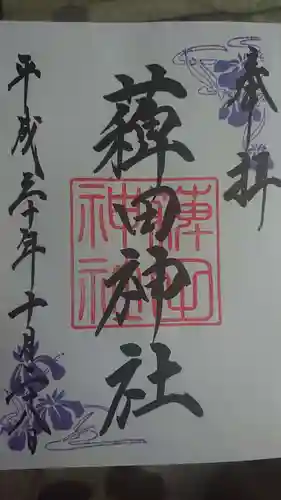 奉拝
薭田神社
薭田
神社
平成三十年十月 八日